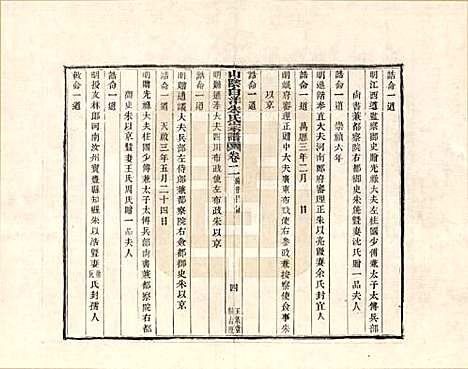 誥命一道
明江西道監察御史贈光祿大夫左柱國少傅兼太子太傅兵部
尚書兼都察院右都御史朱 暨妻沈氏贈一品夫人
誥命一道 崇禎六年
明進階奉直大夫河南郡府審理正朱以亮暨妻余氏封宜人
誥命一道 萬曆三年二月 日
明岷府審理正贈中大夫廣東布政使司左參政兼按察使僉事朱
誥命一道
山陰白洋朱氏宗譜 卷二
四
玉泉堂
明贈通奉大夫四川布政使左布政朱以京
誥命一道
明贈通議大夫兵部左侍郎兼都察院右僉都御史朱以京
誥命一道 天啟五年五月二十四日
明贈光祿大夫柱國少傅兼太子太傅兵部尚書兼都察院右都
御史朱以京暨妻王氏周氏贈一品夫人
誥命一道
明授文林郎河南汝州寶豐縣知縣朱以 暨妻 氏封孺人
敕命一道